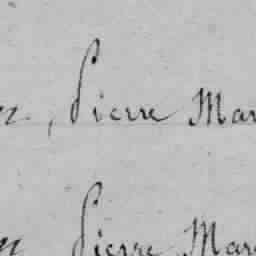 , Pierre Mar
Pierre Mar